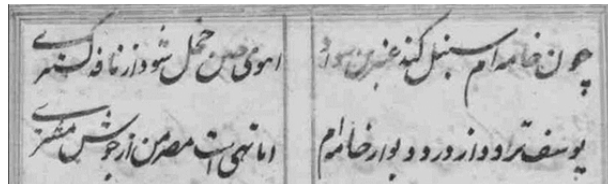 چون خامه ام سنبل کند عنبرین سواد
اهوی چین خجل شود از نافه گستری
یوسف تراود از در و دیوار خانه ام
اما تهی است مصر من از جوش مشتری